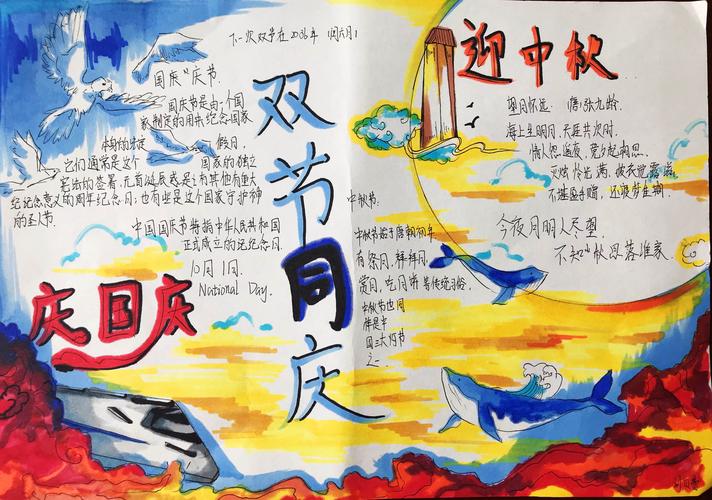 下一次双节在2036年
双节同庆
国庆"庆节
国庆节是由一个国
家制定的用来纪念国家
本身的法定
假日.
它们通常是这个
国家的独立
宪法的签署、元首诞辰或是
有其他有重大
纪念意义的周年纪念日;也有些是这个国家守护神
的圣人节.
中国国庆节特指中华人民共和国
正式成立的纪念日
10月1日.
National Day.
庆国庆
迎中秋
望月怀远. 唐:张九龄.
海上生明月,天涯共此时.
情人怨遥夜,竟夕起相思.
灭烛怜光满,披衣觉露滋
不堪盈手赠,还寝梦佳期.
今夜月明人尽望
不知秋思落谁家.
中秋节:
中秋节始于唐朝初年
有祭月,拜月
赏月、吃月饼等传统习俗.
中秋节也同
样是中
国三大灯节
之一.